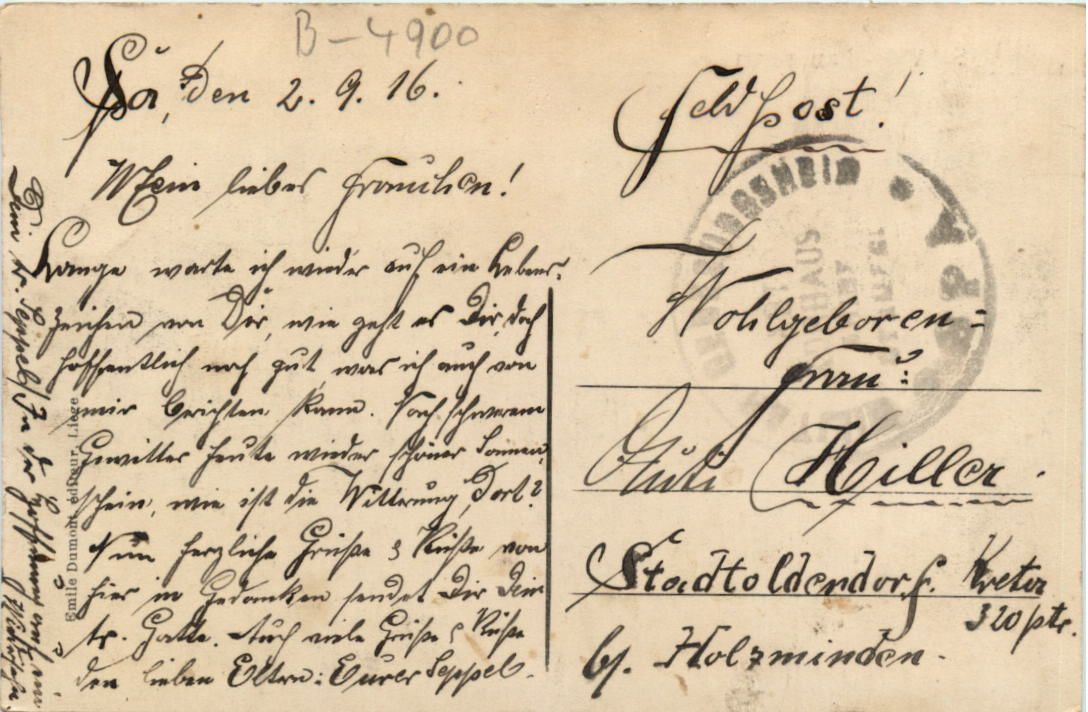 B-4900
den 2. 9. 16.
Mein liebes Frauchen!
Lange warte ich wieder auf ein Lebens-
zeichen von Dir, wie geht es Dir, doch
hoffentlich noch gut, was ich auch von
mir berichten kann. Nach schwerem
Gewitter heute wieder schöner Sonnen-
schein, wie ist die Witterung dort?
Nun herzliche Grüße & Küße von
hier in Gedanken sendet Dir Dein
tr. Gatte. Auch viele Grüße & Küße
den lieben Eltern: Eurer Seppel.
Dein tr. Seppel! In der Hoffnung auf ein
Wiedersehn.
Emile Dumont, éditeur, Liége
Feldpost!
Wohlgeboren=
Frau:
Hiller
Stadtoldendorf. Kreter
320ptr.
b/. Holzminden.